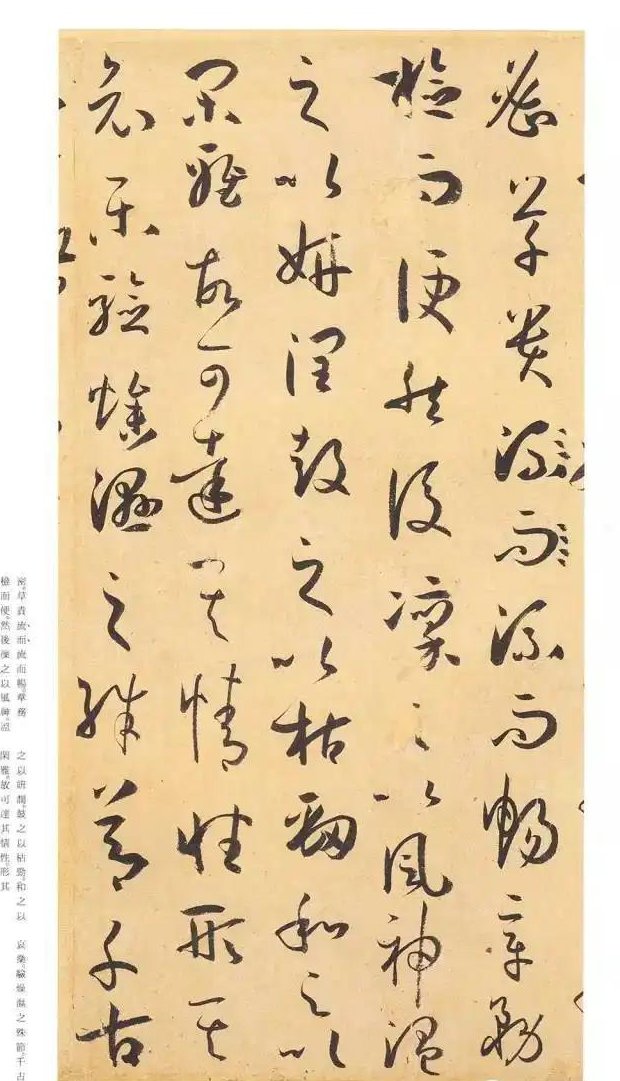 密草貴流而流而暢章務
檢而便然後凜之以風神溫
之以妍潤鼓之以枯勁和之以
閑雅故可達其情性形其
哀樂驗燥濕之殊節千古
密。草貴流而流而暢。章務
檢而便。然後凜之以風神。溫
之以妍潤。鼓之以枯勁。和之以
閑雅。故可達其情性。形其
哀樂。驗燥濕之殊節。千古